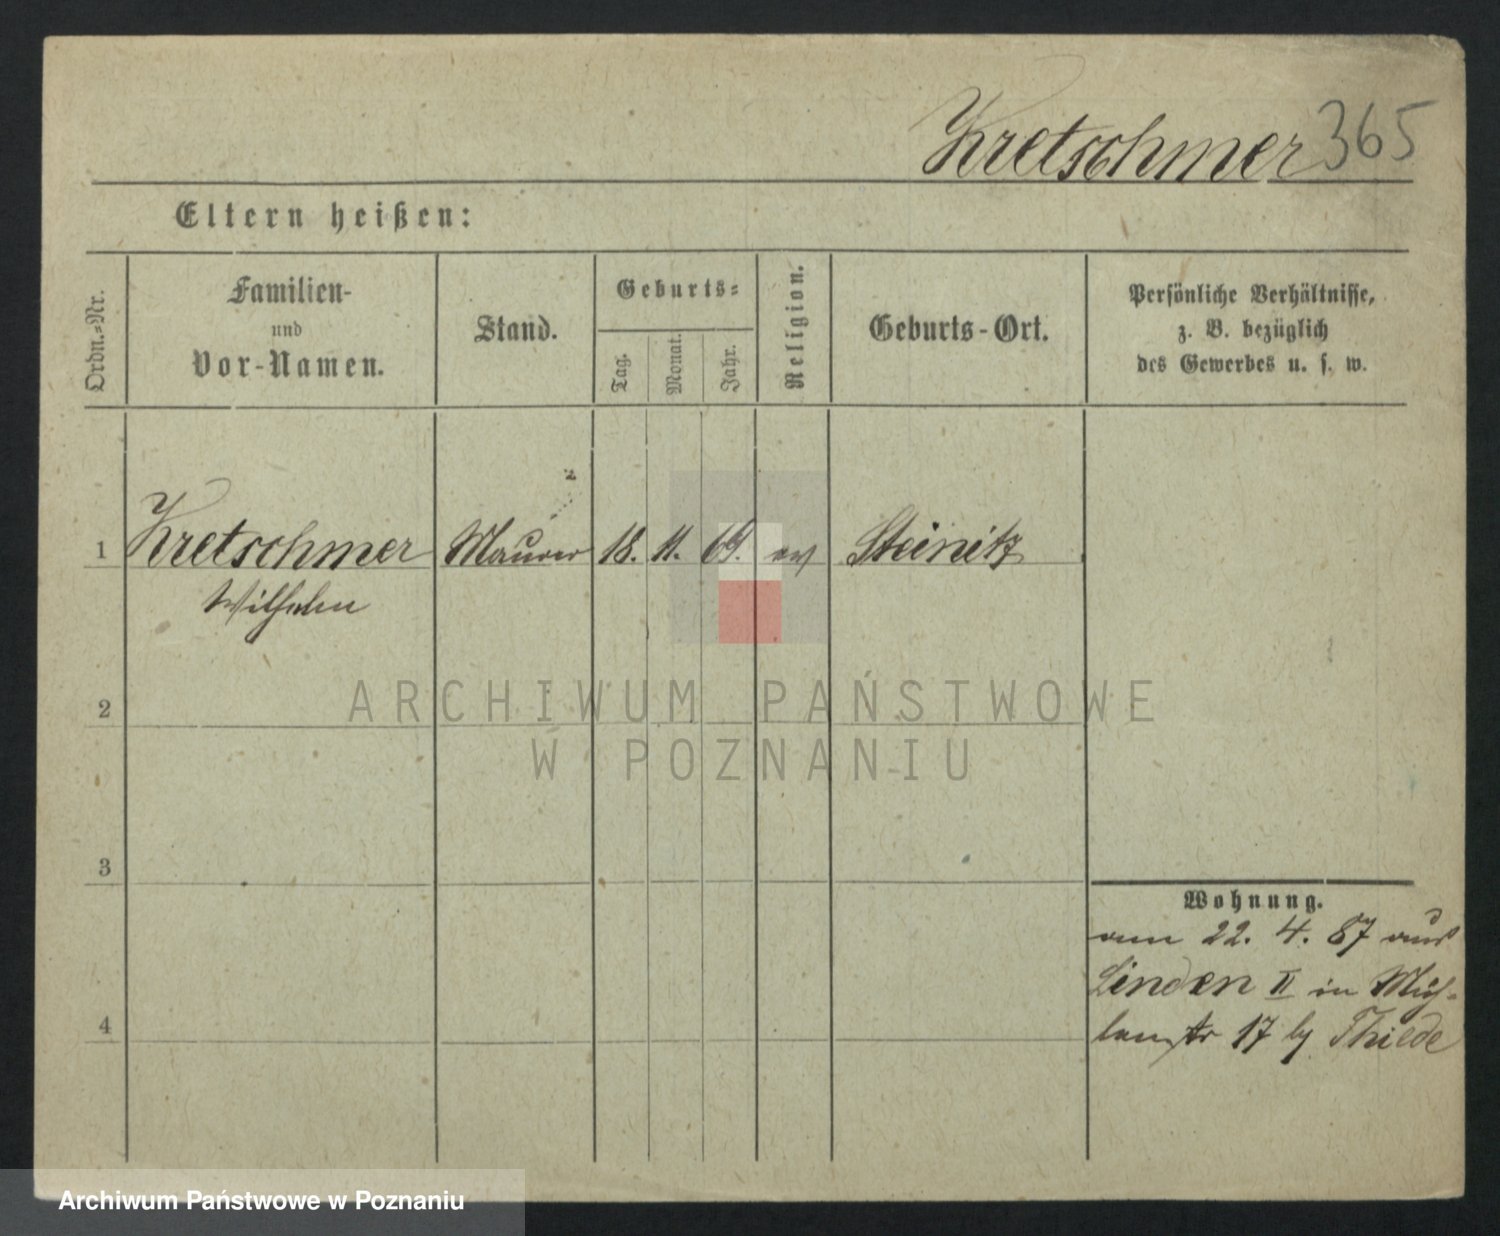 Kretschmer 365
Eltern heißen:
Ordn.-Nr.
Familien-
und
Vor-Namen.
Stand.
Geburts-
Tag.
Monat.
Jahr.
Religion.
Geburts-Ort.
Persönliche Verhältnisse,
z. B. bezüglich
des Gewerbes u. s. w.
1 Kretschmer Maurer 18. 11. 69. ev Steinitz
Wilhelm
2
3
4
Wohnung.
am 22. 4. 87 aus
Linden II in Müh-
lenstr 17 by Thiede
ARCHIWUM PAŃSTWOWE
W POZNANIU
Archiwum Państwowe w Poznaniu